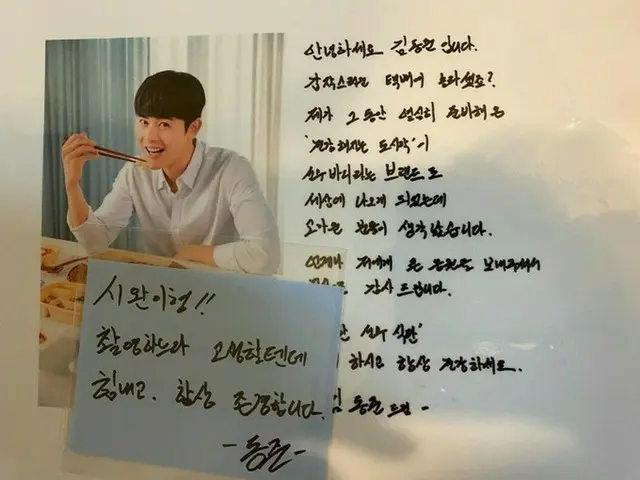 안녕하세요 김동준 입니다.
갑작스러운 택배에 놀라셨죠?
제가 그동안 열심히 준비해온
'건강해지는 도시락'이
브랜드로
세상에 나오게 되었는데
고마운 분들이 생각났습니다.
언제나 저에게 큰 응원을 보내주셔서
감사드립니다.
식단'
하시고 항상 건강하세요.
김동준 드림 -
시완이형!!
촬영하느라 고생할텐데
힘내고. 항상 존경합니다.
- 동준 -